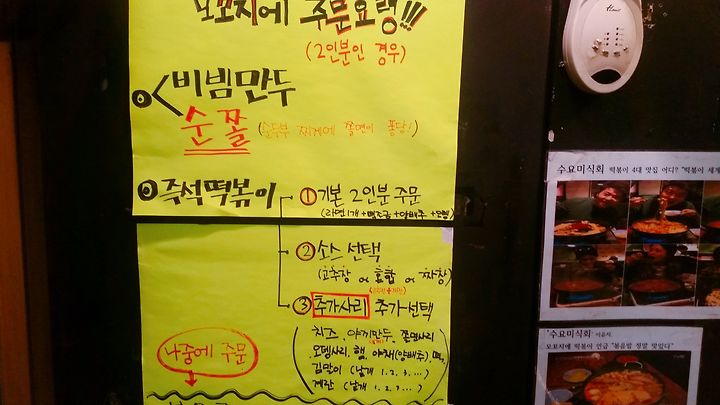 모꼬지에 주문요령!!!
(2인분인 경우)
비빔만두
순쫄 (순두부 찌개에 쫄면이 퐁당!)
즉석떡볶이
① 기본 2인분 주문
(라면1개+떡조금+양배추+오뎅)
② 소스 선택
(고추장 or 혼합 or 짜장)
③ 추가사리 추가선택
(치즈, 야끼만두, 쫄면사리
오뎅사리, 햄, 야채(양배추), 떡,
김말이 (낱개 1, 2, 3, ...)
계란 (낱개 1, 2, 3, ...)
나중에 주문
수요미식회 떡볶이 4대 맛집 어디? "떡볶이 세계
'수요미식회'
모꼬지에 떡볶이 언급 "볶음밥 정말 맛있다"